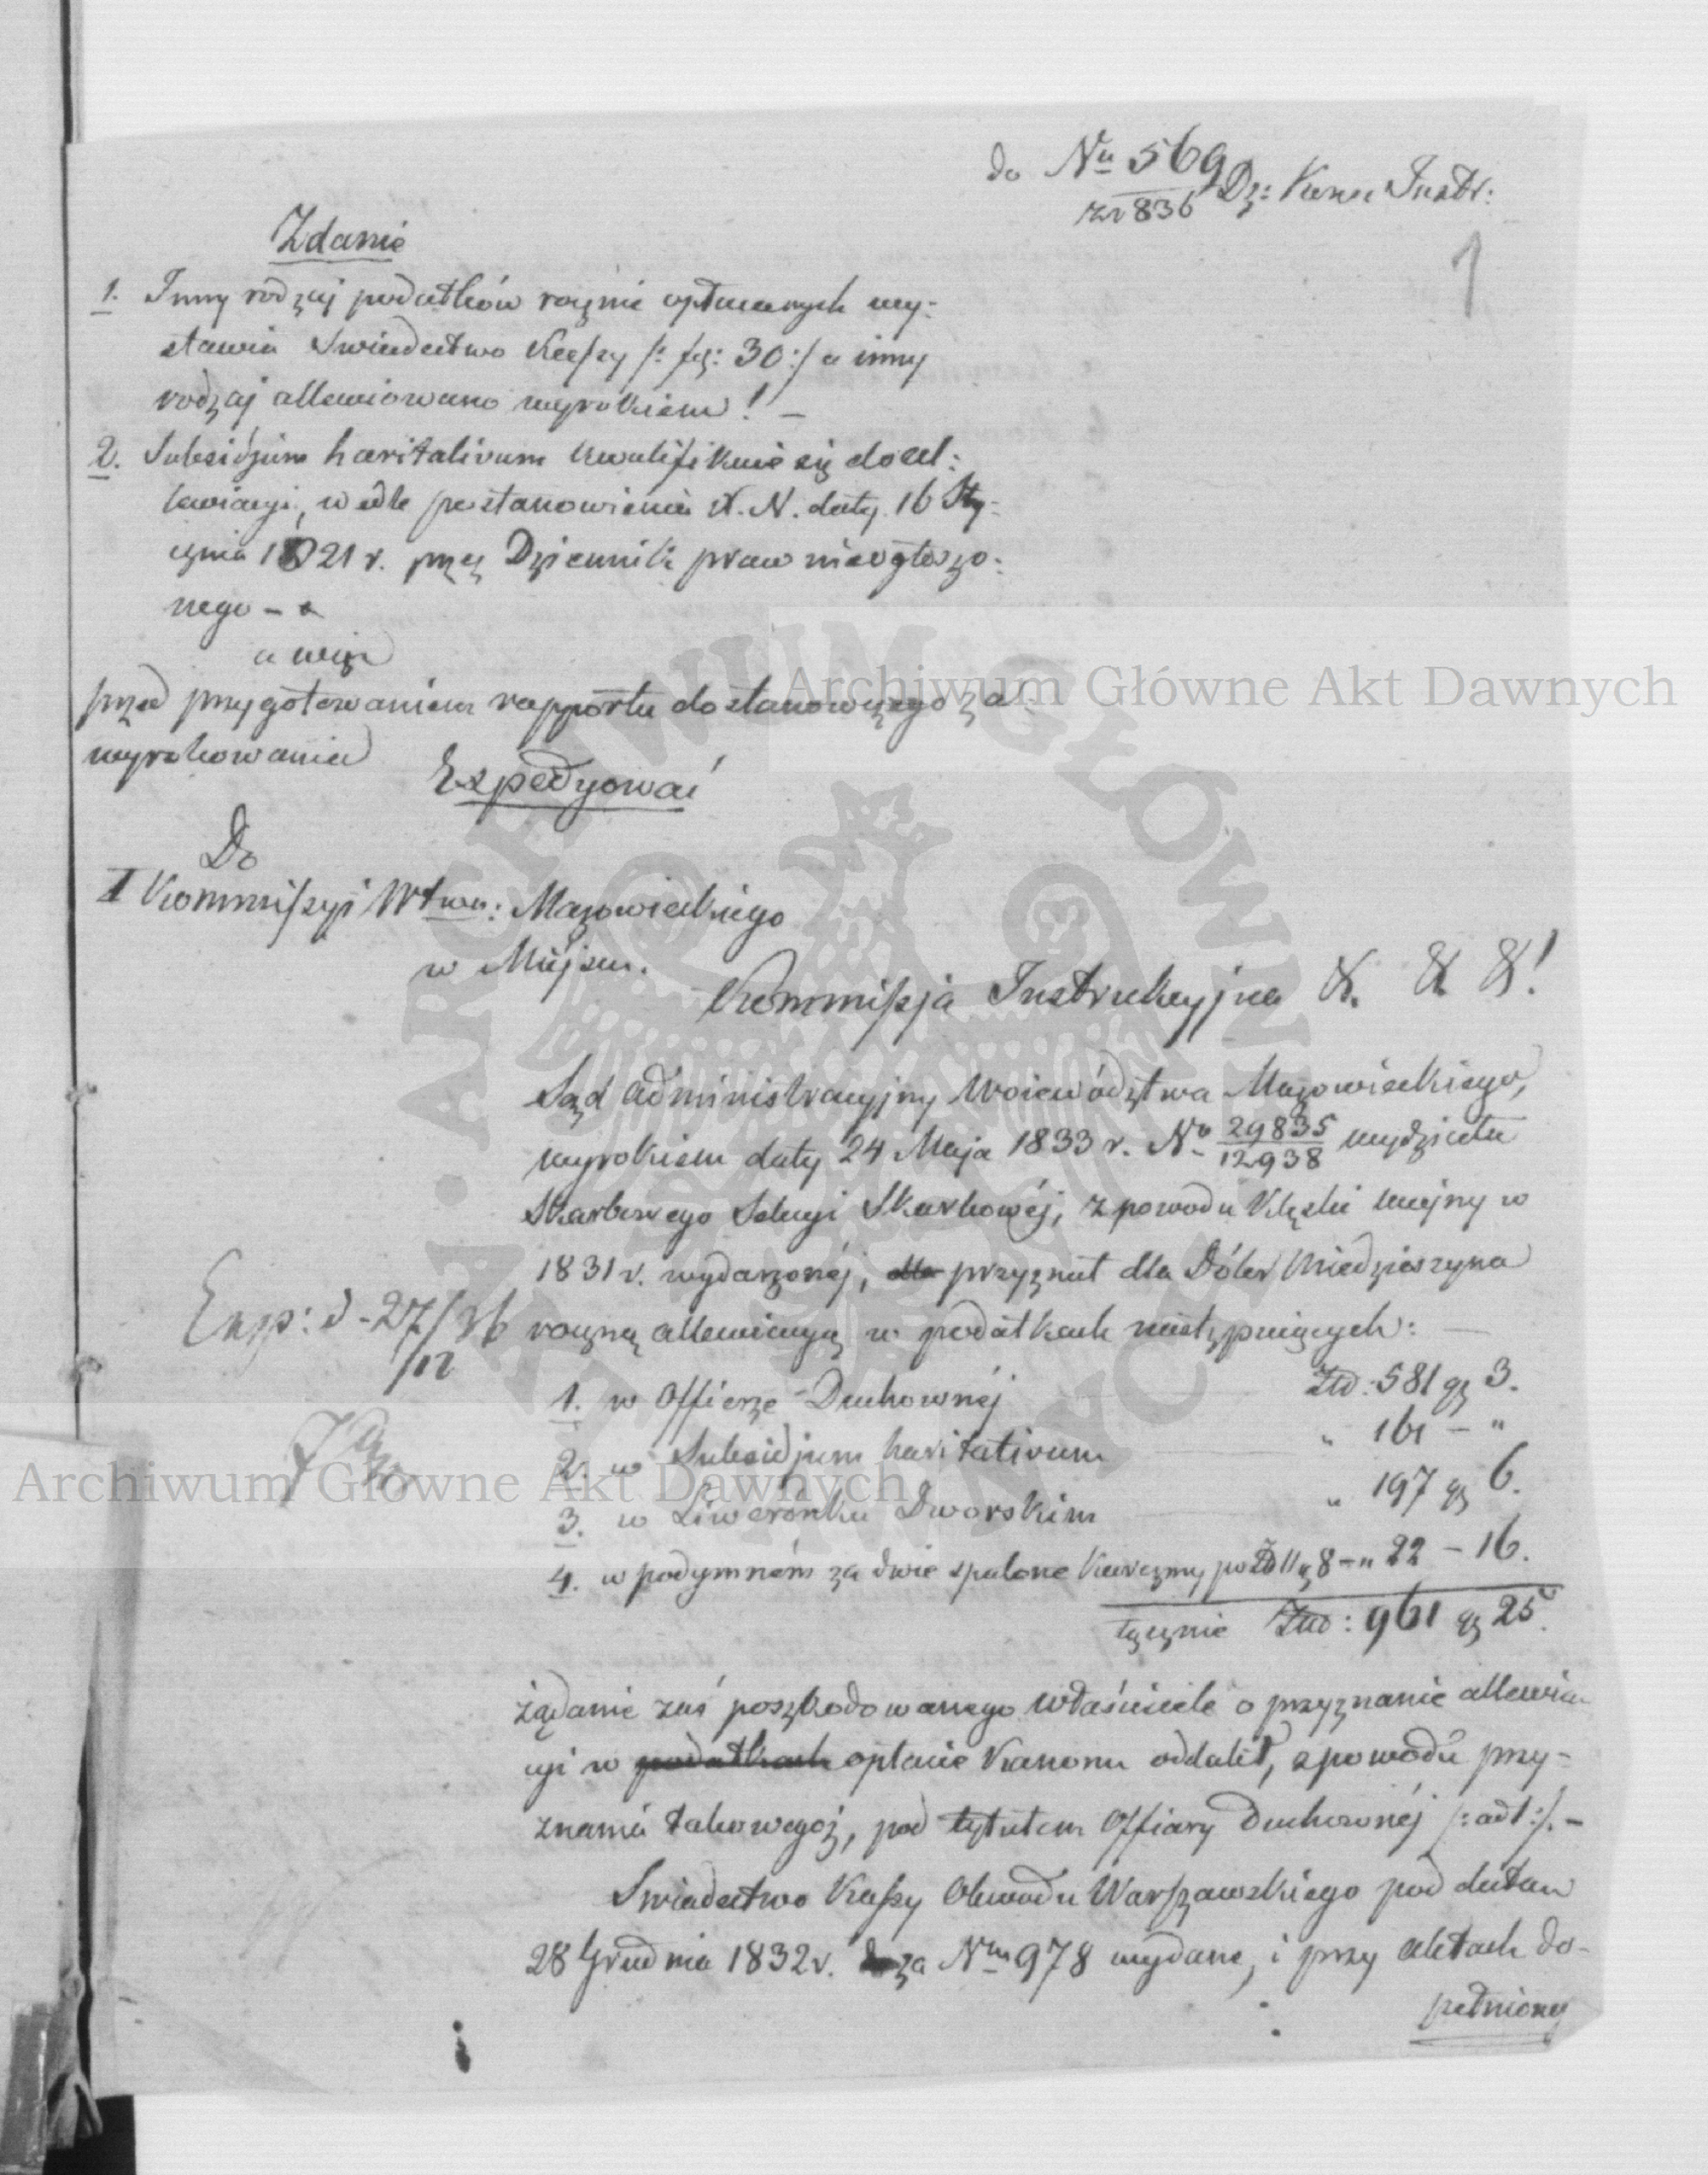 do Nu 569 Dz: Kom Instr:
zr 836
1
Zdanie
1. Inny rodzaj podatków rocznie opłacanych wy-
stawia Swiadectwo Kassy /: fol: 30 :/ a inny
rodzaj allewiowano wyrokiem! –
2. Subsidjum haritativum kwalifikuie się do al-
lewiacyi, wedle postanowienia X. N. daty 16 Sty-
cznia 1821 r. przez Dziennik praw nieogłoszo-
nego –
a więc
przed przygotowaniem rapportu do stanowczego za-
wyrokowania
Expedyować
Do
I Kommissyi Wtwa: Mazowieckiego
w Miejscu.
Kommissja Instrukcyjna & & &!
Sąd Administracyjny Woiewództwa Mazowieckiego,
wyrokiem daty 24 Maja 1833 r. No 29835/12938 wydziału
Skarbowego Sekcyi Skarbowéj, z powodu klęski woyny w
1831 r. wydarzonéj, dla przyznał dla Dóbr Miedzieszyna
roczną allewiacyą w podatkach następuiących: –
Exp: d. 27/12 36
1. w Offierze Duchownéj Złp: 581 gr 3.
2. w Subsidjum haritativum " 161 – "
3. w Liwerunku Dworskim " 197 gr 6.
4. w podymném za dwie spalone Karczmy po Złp 11 gr 8 – " 22 – 16.
łącznie Złp: 961 gr 25.
żądanie zaś poszkodowanego właściciela o przyznanie allewia-
cyi w podatkach opłacie Kanonu oddalił, z powodu przy-
znania takowegoż, pod tytułem Offiary Duchownéj /: ad 1 :/. –
Swiadectwo Kassy Obwodu Warszawskiego pod datam
28 Grudnia 1832 r. za Nm 978 wydane, i przy aktach do-
pełniony
Archiwum Główne Akt Dawnych
Archiwum Główne Akt Dawnych
ARCHIWUM GŁÓWNE AKT DAWNYCH W WARSZAWIE